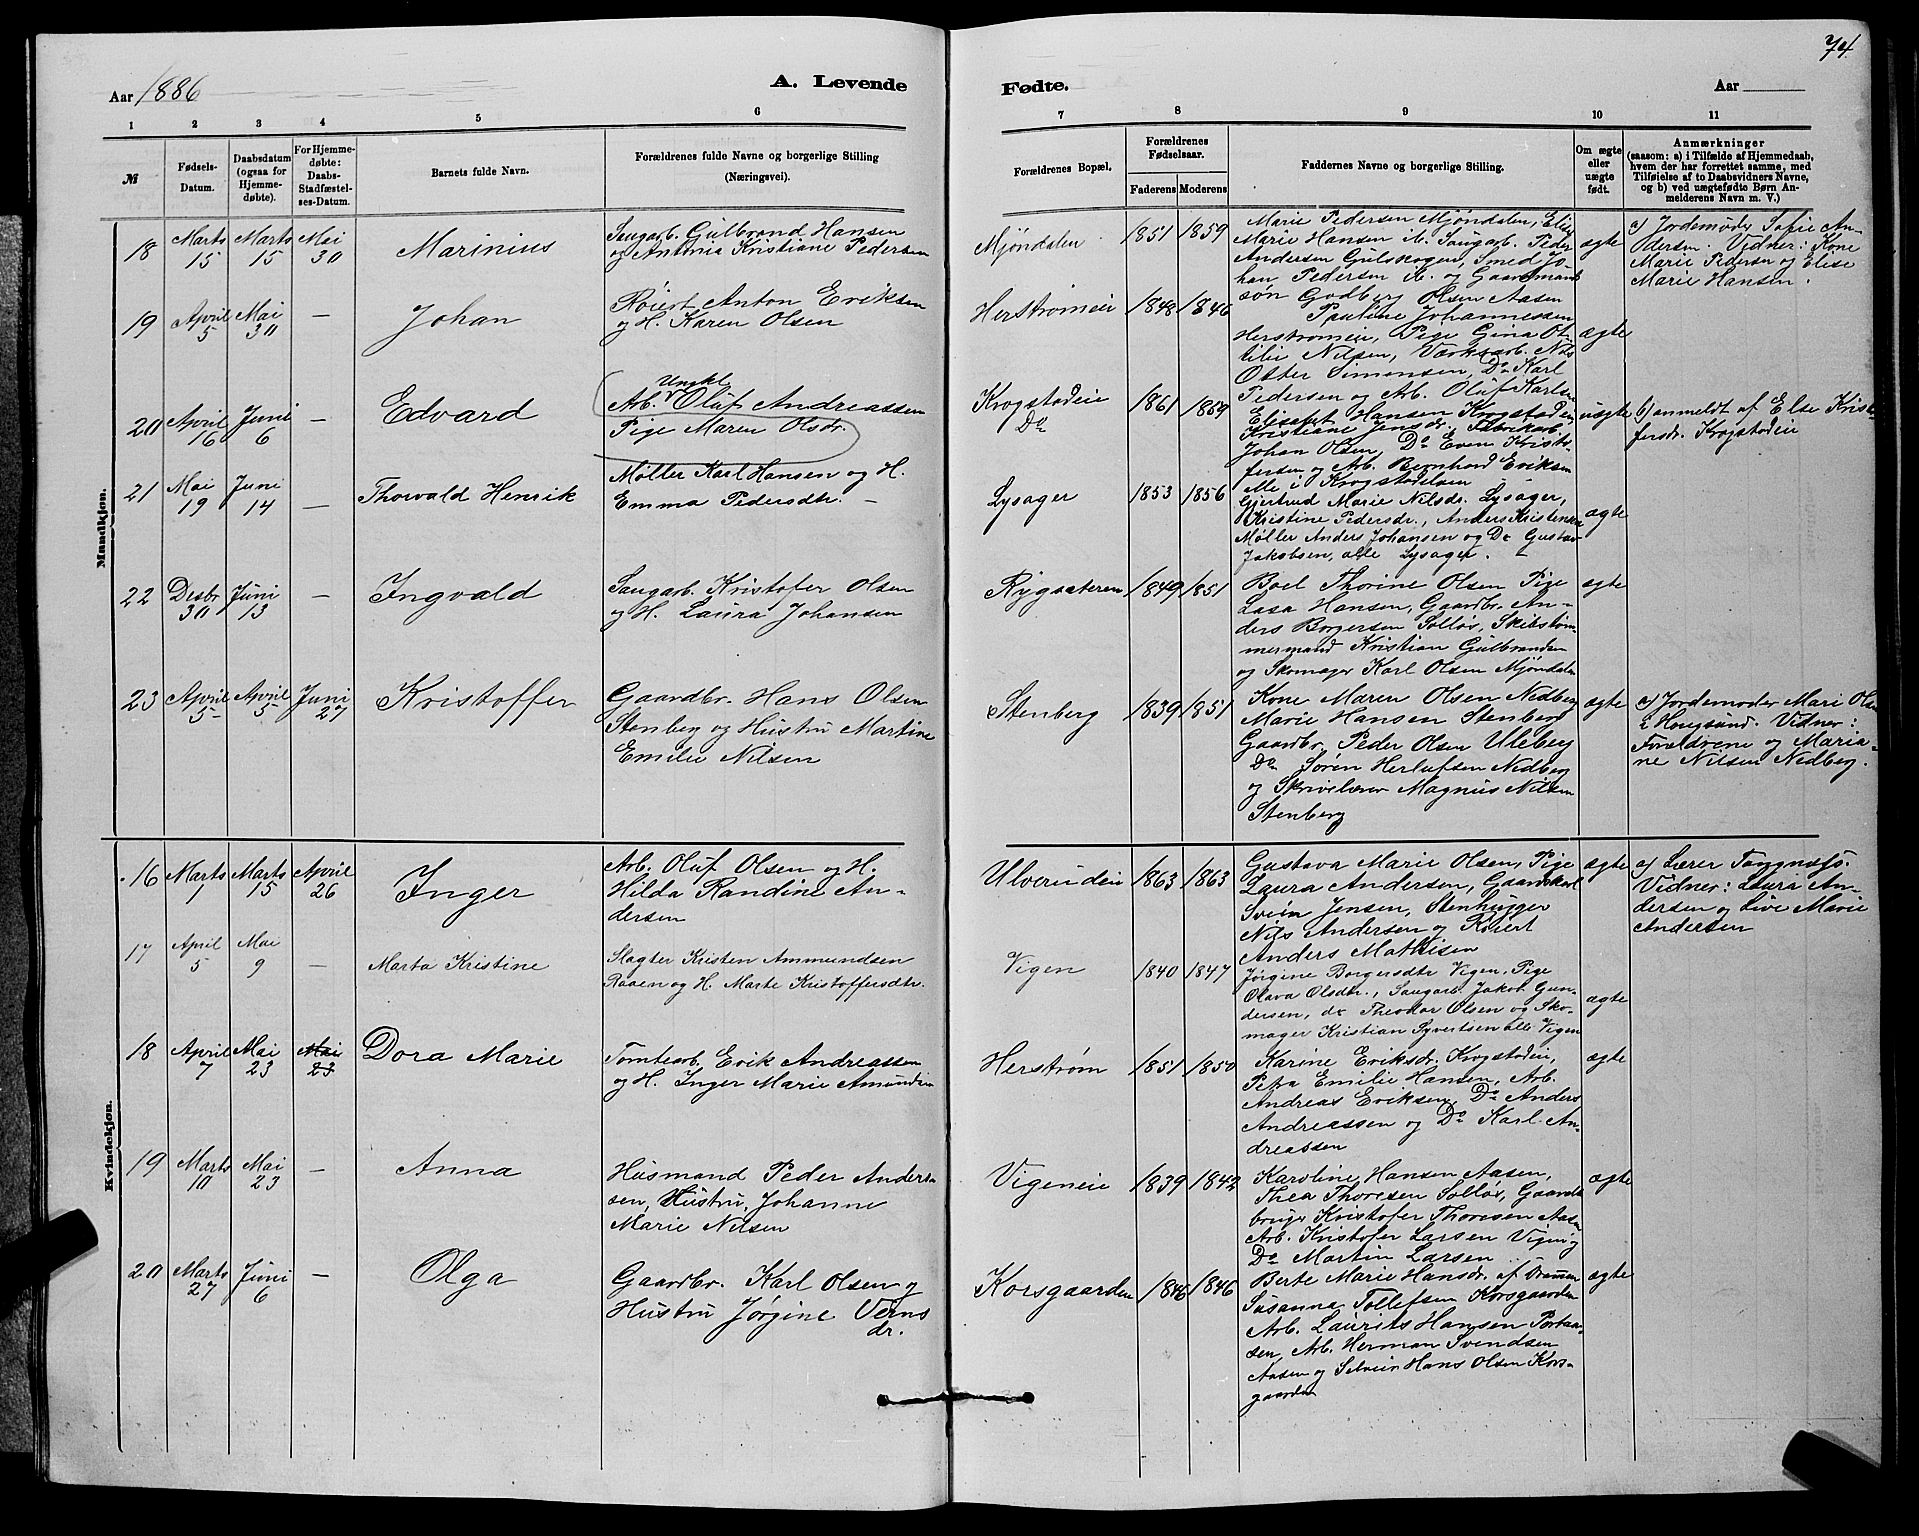 74.
Aar 1886
A. Levende
Fødte.
Aar
1 2 3 4 5 6
7 8 9 10 11
№
Fødsels-
Datum.
Daabsdatum
(ogsaa for
Hjemme-
døbte).
For Hjemme-
døbte:
Daabs-
Stadfæstel-
ses-Datum.
Barnets fulde Navn.
Forældrenes fulde Navne og borgerlige Stilling
(Næringsvei).
Forældrenes Bopæl.
Forældrenes
Fødselsaar.
Faderens Moderens
Faddernes Navne og borgerlige Stilling.
Om ægte
eller
uægte
født.
Anmærkninger
(saasom: a) i Tilfælde af Hjemmedaab,
hvem der har forrettet samme, med
Tilføielse af to Daabsvidners Navne,
og b) ved uægtefødte Børn An-
melderens Navn m. V.)
Mandkjøn.
18 Marts 15 Marts 15 Mai 30
Marinius
Saugarb. Gulbrand Hansen
og Antonia Kristiane Pedersen
Mjøndalen
1851 1859
Marie Pedersen Mjøndalen, Elise
Marie Hansen ib. Saugarb. Peder
Andersen Gulskogen, Smed Jo-
han Pedersen ib. og Gaardmands
søn Godberg Olsen Aasen
ægte
a) Jordemoder Sofie An-
dersen. Vidner: Kone
Marie Pedersen og Elise
Marie Hansen.
19 April 5 Mai 30 —
Johan
Røiert Anton Eriksen
og H. Karen Olsen
Herstrømeie
1848 1846
Pauline Johannessen
Herstrømeie, Pige Gina Ot-
tilie Nilsen, Værksarb. Nils
Otter Simensen, Do Karl
Pedersen og Arb. Oluf Karlsen
ægte
20 April 16 Juni 6 —
Edvard
Ungkl.
Arb. Oluf Andreassen
Pige Maren Olsdr.
Krogstadeie
Do
1861 1859
Elisabet Hansen Krogstadeie
Kristiane Jensdr. Fabrikarb.
Johan Olsen, Do Even Kristo-
fersen og Arb. Bernhard Eriksen
alle i Krogstadelsen
uægte
b) anmeldt af Else Kristo-
fersdr. Krogstadeie
21 Mai 19 Juni 14 —
Thorvald Henrik
Møller Karl Hansen og H.
Emma Pedersdtr. —
Lysager
1853 1856
Gjertrud Marie Nilsdr. Lysager,
Kristine Pedersdr., Anders Kristensen
Møller Anders Johansen og Do Gustav
Jakobsen, alle Lysager.
ægte
22 Desbr 30 Juni 13 —
Ingvald
Saugarb. Kristofer Olsen
og H. Laura Johansen
Rygsæteren
1849 1851
Boel Thorine Olsen Pige
Lasa Hansen, Gaardbr. An-
ders Borgersen Solløs, Skibstøm-
mermand Kristian Gulbrandsen
og Skomager Karl Olsen Mjøndalen
ægte
23 April 5 April 5 Juni 27
Kristoffer
Gaardbr. Hans Olsen
Stenberg og Hustru Martine
Emilie Nilsen
Stenberg
1839 1851
Kone Maren Olsen Nedberg
Marie Hansen Stenberg
Gaardbr. Peder Olsen Uleberg
Do Søren Herlufsen Nedberg
og Skrivelærer Magnus Nilsen
Stenberg
ægte
a) Jordemoder Mari Olsen
i Haugsund. Vidner:
Forældrene og Maria-
ne Nilsen Nedberg.
Kvindekjøn.
16 Marts 1 Marts 15 April 26
Inger
Arb. Oluf Olsen og H.
Hilda Randine An-
dersen
Ulverudeie
1863 1863
Gustava Marie Olsen, Pige
Laura Andersen, Gaardskarl
Svein Jensen, Stenhugger
Nils Andersen og Røiert
Anders Mathisen
ægte
a) Lærer Tangnæss.
Vidner: Laura An-
dersen og Live Marie
Andersen
17 April 5 Mai 9 —
Marta Kristine
Slagter Kristen Ammundsen
Raaen og H. Marte Kristoffersdtr.
Vigen
1840 1847
Jørgine Borgersdtr Vigen, Pige
Olava Olsdtr., Saugarb. Jakob Gun-
dersen, do Theodor Olsen og Sko-
mager Kristian Syvertsen alle Vigen
ægte
18 April 7 Mai 23 Mai 23
Dora Marie
Tomtearb. Erik Andreassen
og H. Inger Marie Amundsen
Herstrøm
1851 1850
Karine Eriksdr. Krogstadeie,
Petra Emilie Hansen, Arb.
Andreas Eriksen, Do Anders
Andreassen og Do Karl An-
dreassen
ægte
19 Marts 10 Mai 23 —
Anna
Husmand Peder Anders-
sen, Hustru, Johanne
Marie Nilsen
Vigeneie
1839 1842
Karoline Hansen Aasen,
Thea Thoresen Solløs, Gaard-
bruger Kristofer Thoresen Aasen
Arb. Kristofer Larsen Vigen og
Do Martin Larsen
ægte
20 Marts 27 Juni 6 —
Olga
Gaardbr. Karl Olsen og
Hustru Jørgine Verns
dr.
Korsgaarden
1846 1846
Berte Marie Hansdr. af Drammen
Susanna Tollefsen Korsgaarden
Arb. Laurits Hansen Portaa-
sen, Arb. Herman Svendsen
Aasen og Selveier Hans Olsen Kors-
gaarden
ægte